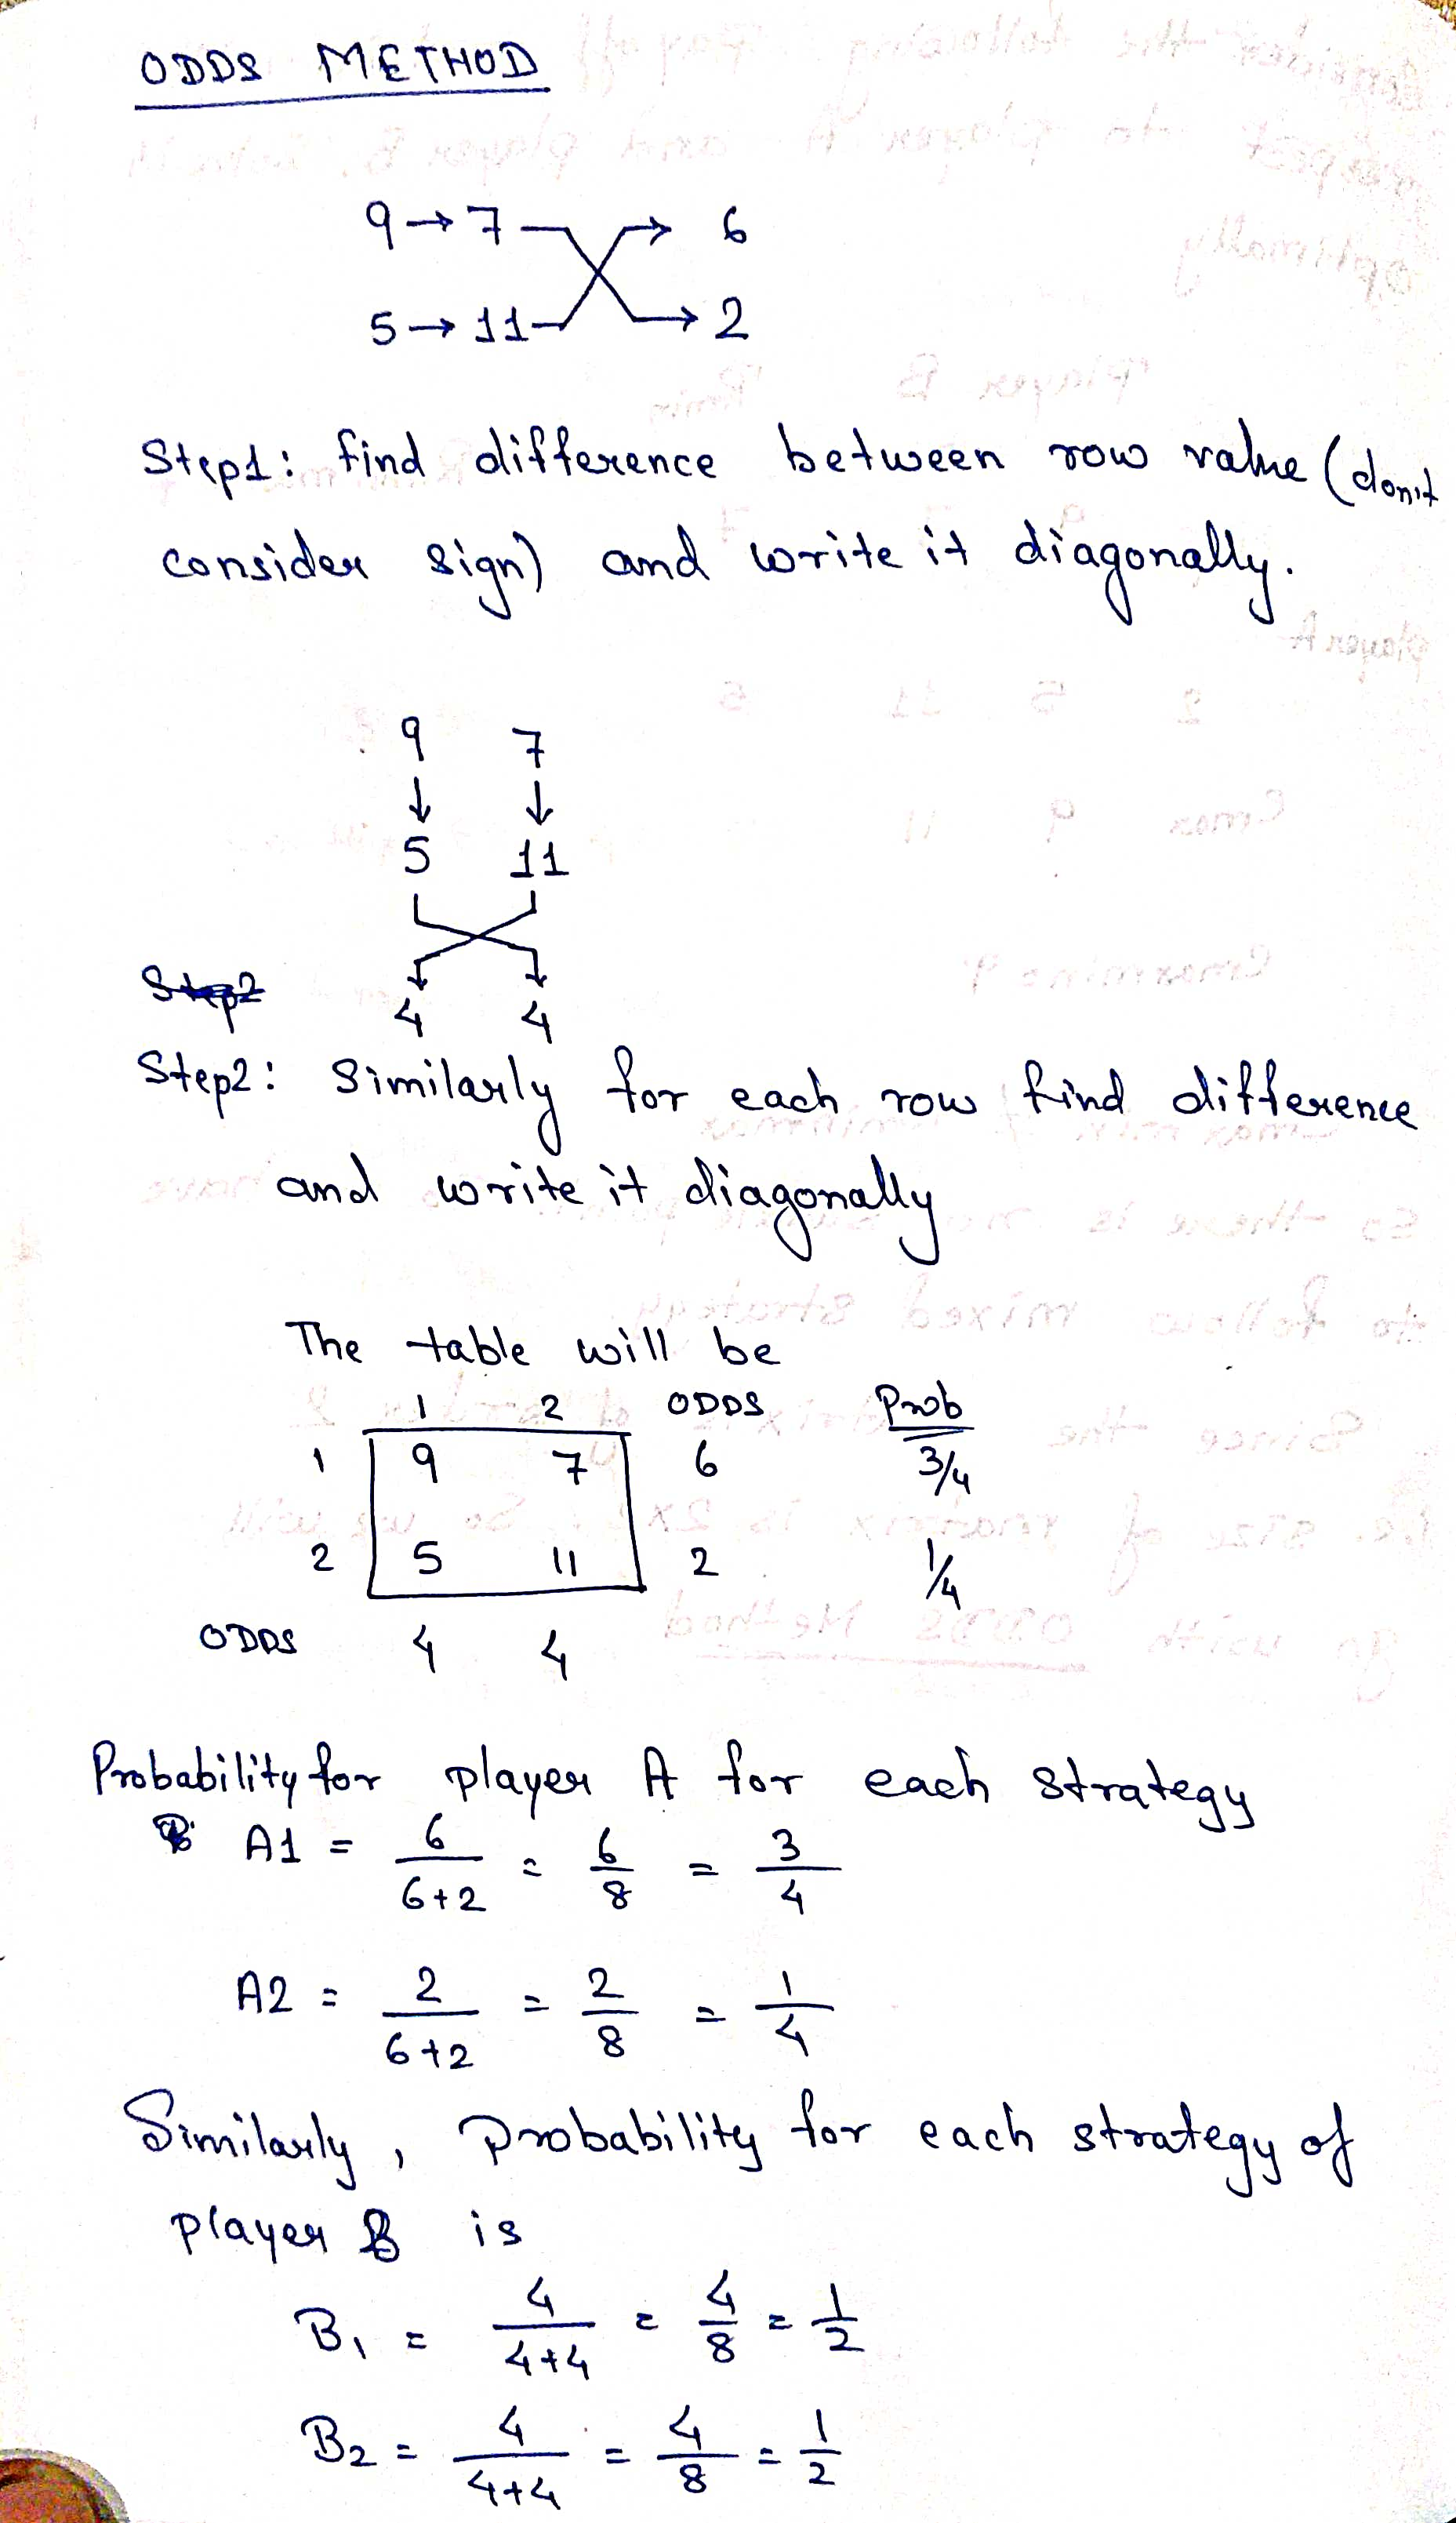 ODDS METHOD
9 → 7 → 6
5 → 11 → 2
Step1: find difference between row value (don't
consider sign) and write it diagonally.
9 7
↓ ↓
5 11
4 4
Step2
Step2: Similarly for each row find difference
and write it diagonally
The table will be
1 2 ODDS Prob
1 9 7 6 3/4
2 5 11 2 1/4
ODDS 4 4
Probability for player A for each strategy
A1 = 6/(6+2) = 6/8 = 3/4
A2 = 2/(6+2) = 2/8 = 1/4
Similarly, probability for each strategy of
player B is
B1 = 4/(4+4) = 4/8 = 1/2
B2 = 4/(4+4) = 4/8 = 1/2